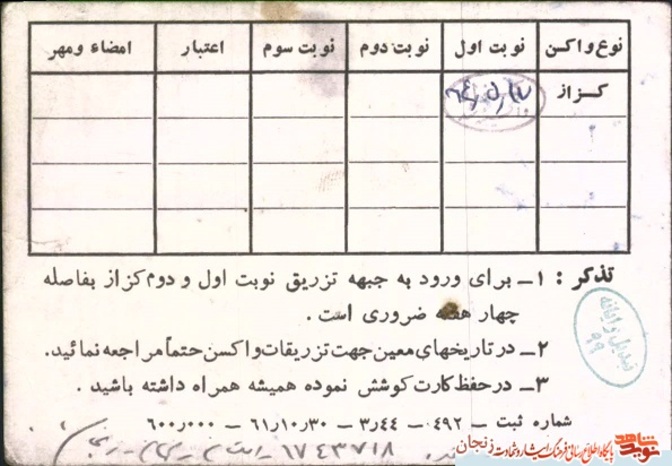 نوع واکسن نوبت اول نوبت دوم نوبت سوم اعتبار امضاء ومهر
کزاز
تذکر : ۱ــ برای ورود به جبهه تزریق نوبت اول و دوم کزاز بفاصله
چهار هفته ضروری است .
۲ــ در تاریخهای معین جهت تزریقات واکسن حتماً مراجعه نمائید.
۳ــ در حفظ کارت کوشش نموده همیشه همراه داشته باشید .
شماره ثبت ــ ۰۴۹۲ ــ ۳٫۴۴ ــ ۶۱٫۱۰٫۳۰ ــ ۶۰۰٫۰۰۰
۶۷۴۳۷۱۸
نوید شاهد پایگاه اطلاع رسانی فرهنگ ایثار و شهادت زنجان